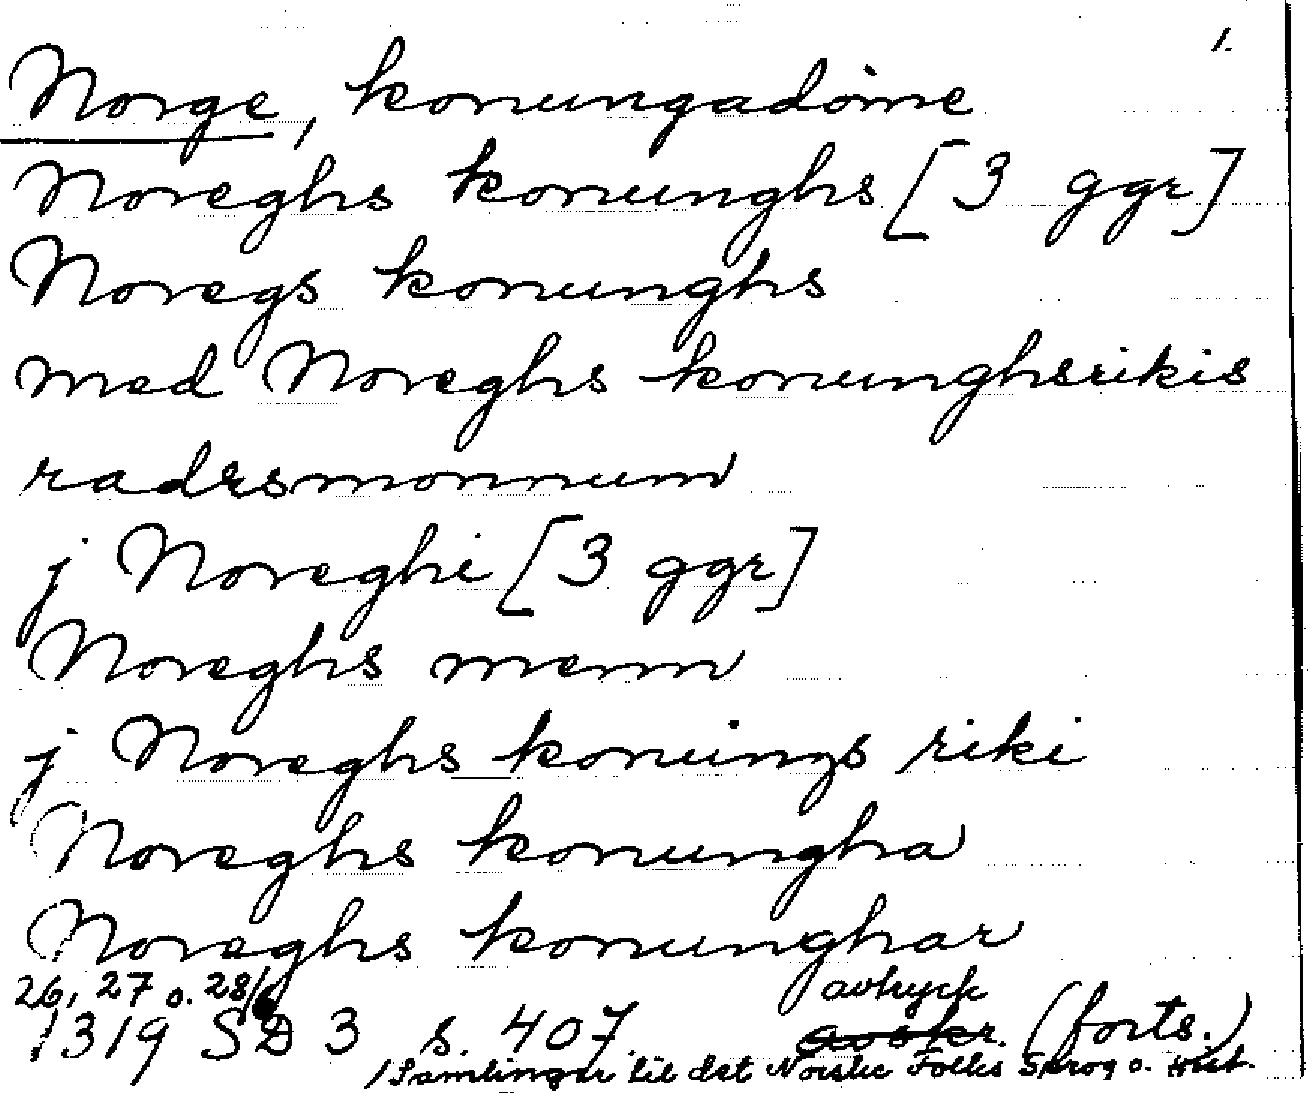 1.
Norge, konungadöme
Noreghs konunghs [3 ggr]
Noregs konunghs
med Noreghs konunghsrikis
radzsmonnum
j Noreghi [3 ggr]
Noreghs menn
j Noreghs konungs riki
Noreghs konungha
Noreghs konunghar
26, 27 o. 28/6 avtryck
1319 SD 3 s. 407. (forts.)
/Samlingar til det Norske Folks Sprog o. Hist.